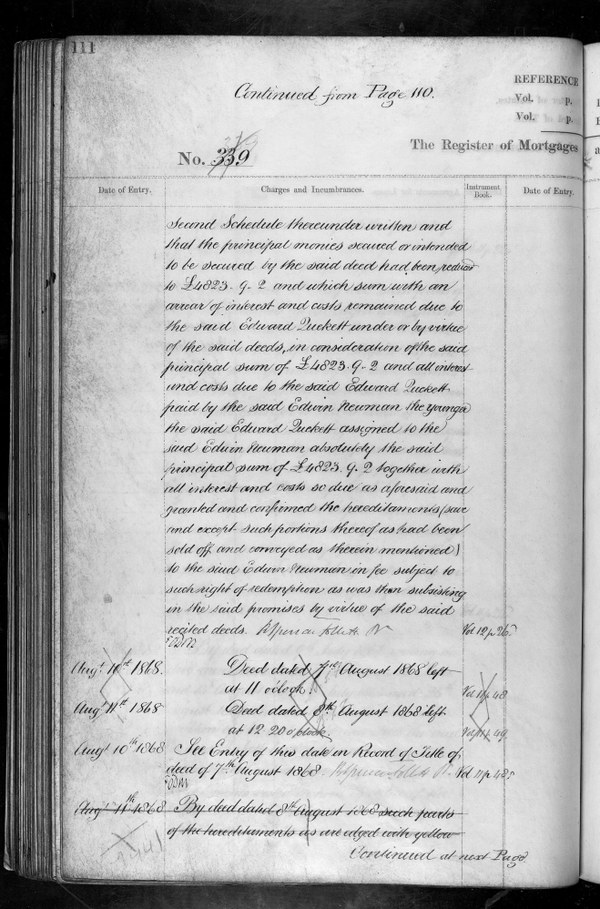 111
Continued from Page 110.
REFERENCE
Vol. p.
Vol. p.
No. 339
The Register of Mortgages
Date of Entry.
Charges and Incumbrances.
Instrument Book.
Date of Entry.
Second Schedule thereunder written and
that the principal monies secured or intended
to be secured by the said deed had been reduced
to £4823. 9. 2 and which sum with an
arrear of interest and costs remained due to
the said Edward Quckett under or by virtue
of the said deeds, in consideration of the said
principal sum of £4823. 9. 2 and all interest
and costs due to the said Edward Quckett
paid by the said Edwin Newman the Younger
the said Edward Quckett assigned to the
said Edwin Newman absolutely the said
principal sum of £4823. 9. 2 together with
all interest and costs so due as aforesaid and
granted and confirmed the hereditamonies (save
and except such portions thereof as had been
sold off and conveyed as therein mentioned)
to the said Edwin Newman in fee subject to
such right of redemption as was then subsisting
in the said promises by virtue of the said
recited deeds. Vol 12 p 26
Augt. 10th 1868. Deed dated 7th August 1868 left
at 11 o'clock. Vol 11 p 48
Augt 11th 1868 Deed dated 8th August 1868 left
at 12.20 o'clock. Vol 11 p 49
Augt 10th 1868 See Entry of this date on Record of Title of
deed of 7th August 1868 Vol 11 p 485
Augt 11th 1868 By deed dated 8th August 1868 such parts
of the hereditaments as are edged with yellow
Continued at next Page